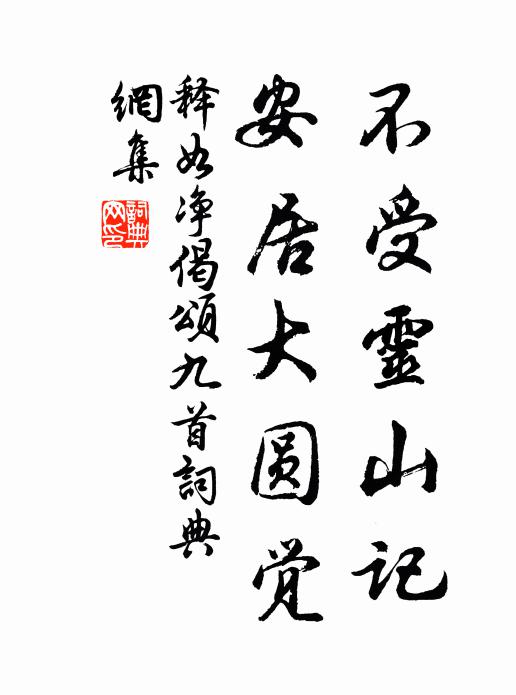 不受靈山记
安居大圆觉
释如净偈頌九首詞典
網集
詞典网印